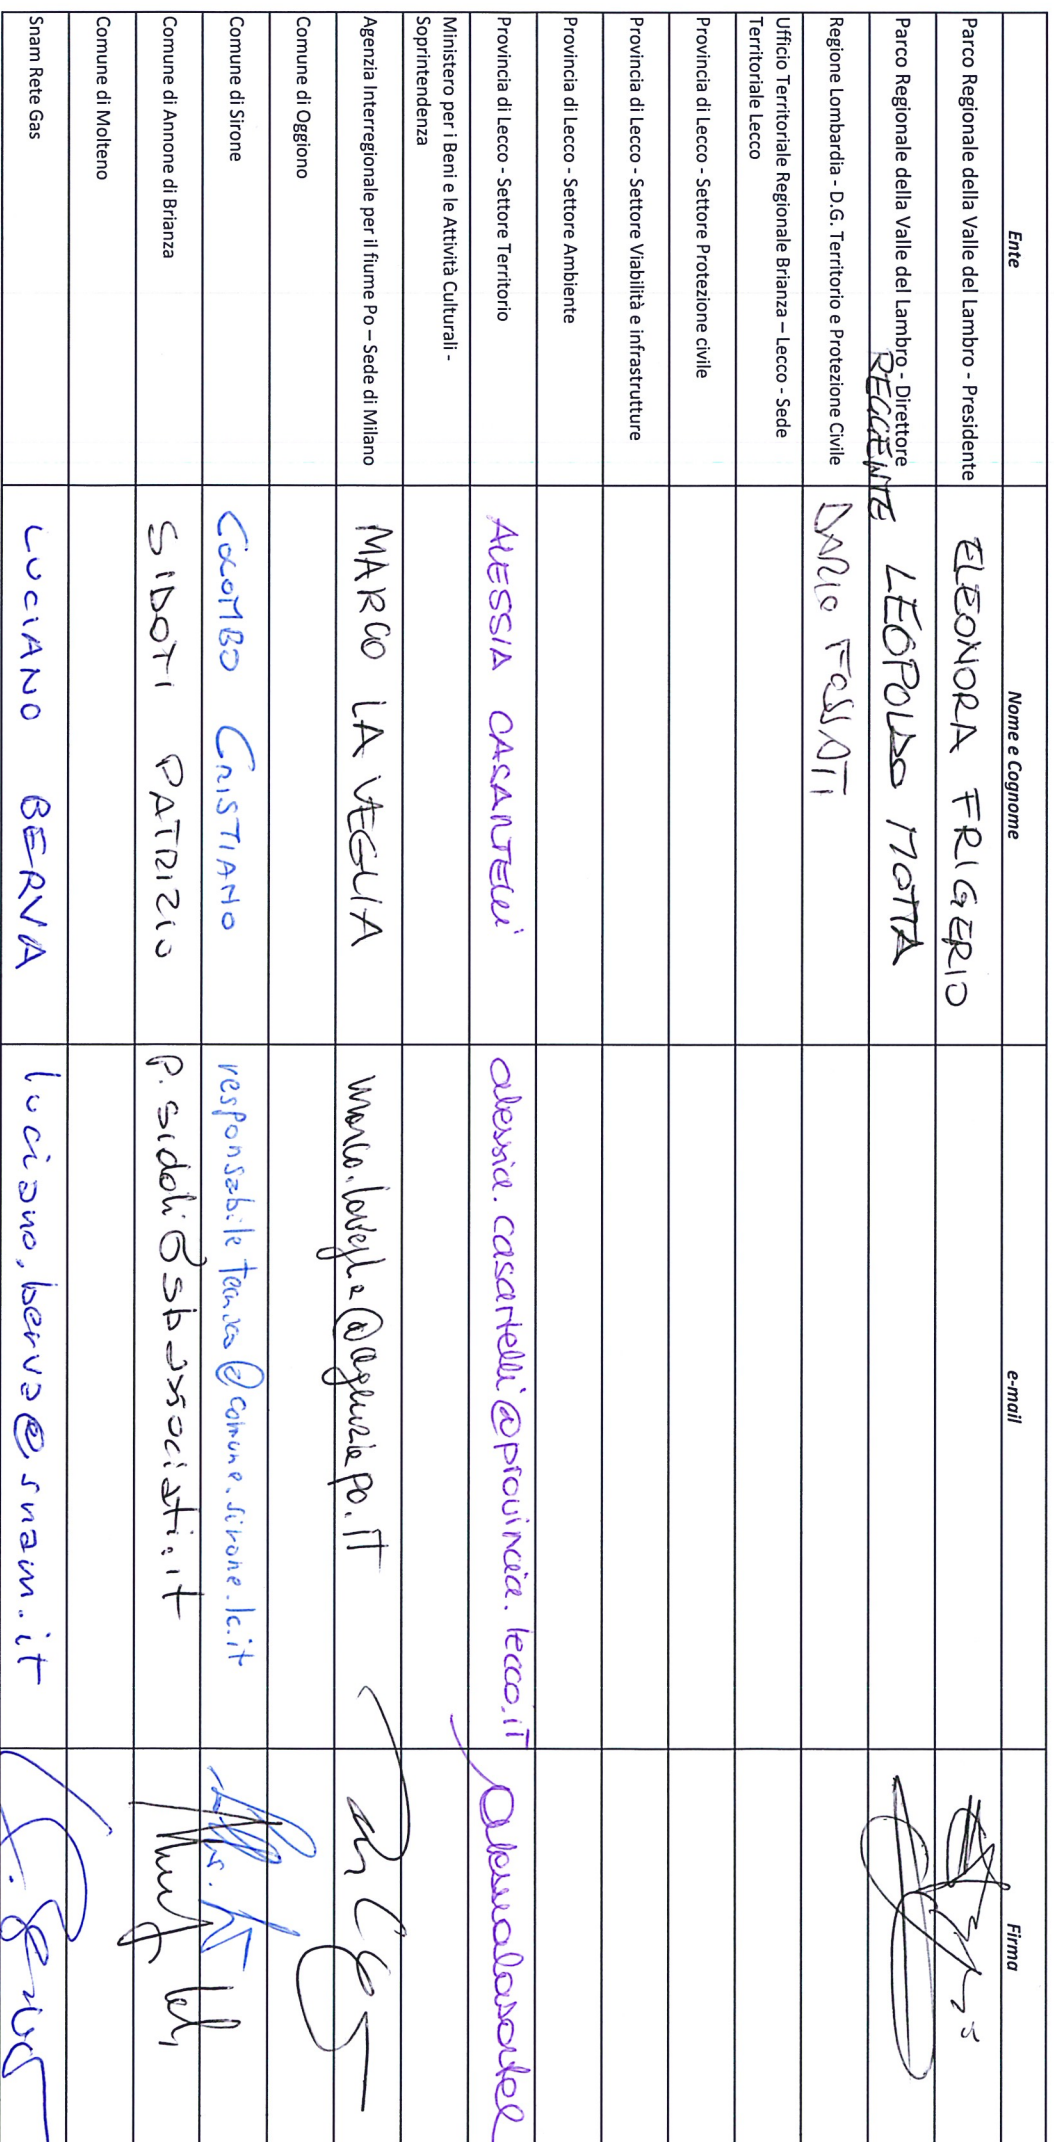 Ente Nome e Cognome e-mail Firma
Parco Regionale della Valle del Lambro - Presidente ELEONORA FRIGERIO
Parco Regionale della Valle del Lambro - Direttore REGGENTE LEOPOLDO MOTTA
Regione Lombardia - D.G. Territorio e Protezione Civile DARIO FOSSATI
Ufficio Territoriale Regionale Brianza – Lecco - Sede
Territoriale Lecco
Provincia di Lecco - Settore Protezione civile
Provincia di Lecco - Settore Viabilità e infrastrutture
Provincia di Lecco - Settore Ambiente
Provincia di Lecco - Settore Territorio ALESSIA CASARTELLI alessia.casartelli@provincia.lecco.iT
Ministero per i Beni e le Attività Culturali -
Soprintendenza
Agenzia Interregionale per il fiume Po – Sede di Milano MARCO LA VEGLIA marco.laveglia@agenziapo.iT
Comune di Oggiono
Comune di Sirone COLOMBO CRISTIANO responsabile tecnico@comune.sirone.lc.it
Comune di Annone di Brianza SIDOTI PATRIZIO p.sidoti@sbassociati.it
Comune di Molteno
Snam Rete Gas LUCIANO BERVA luciano.berva@snam.it